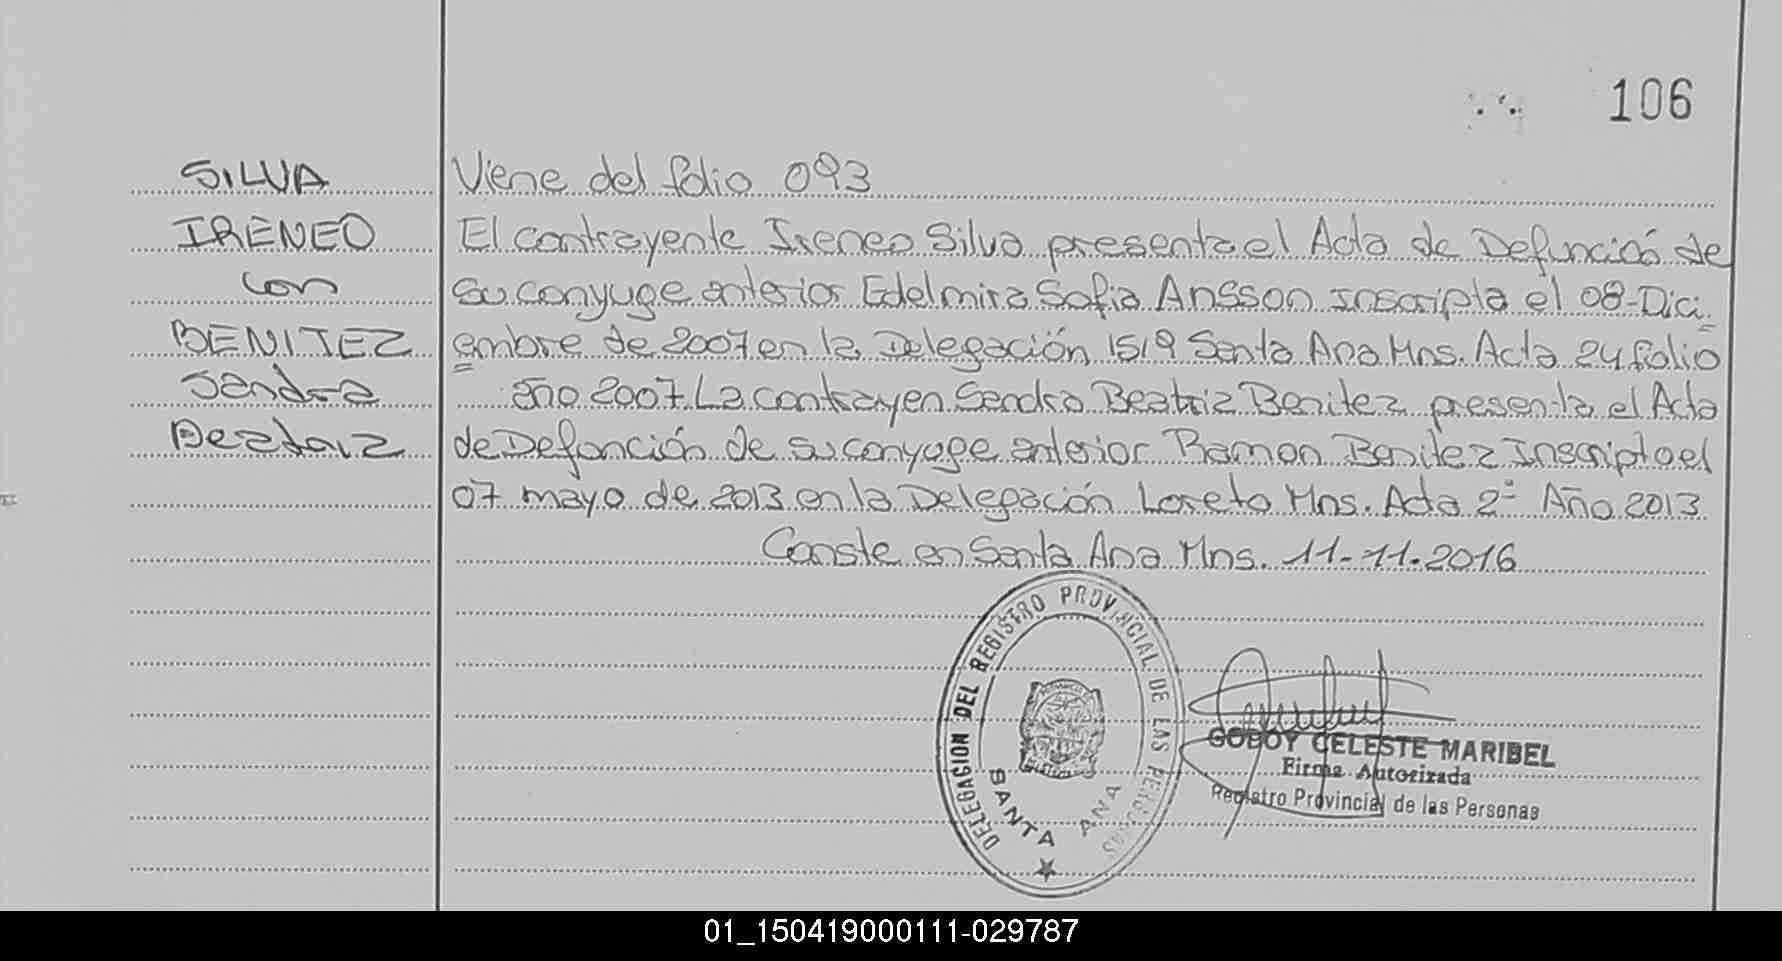 106
SILVA
IRENEO
con
BENITEZ
Sandra
Beatriz
Viene del folio 093
El contrayente Ireneo Silva presenta el Acta de Defunció de
su conyuge anterior Edelmira Sofia Ansson inscripta el 08-Dici
embre de 2007 en la Delegación 1519 Santa Ana Mns. Acta 24 folio
año 2007. La contrayen Sandra Beatriz Benitez presenta el Acta
de Defunción de su conyuge anterior Ramon Benitez Inscripto el
07 mayo de 2013 en la Delegación Loreto Mns. Acta 2º Año 2013
Conste en Santa Ana Mns. 11-11-2016
DELEGACION DEL REGISTRO PROVINCIAL DE LAS PERSONAS
SANTA ANA
GODOY CELESTE MARIBEL
Firma Autorizada
Registro Provincial de las Personas
01_150419000111-029787